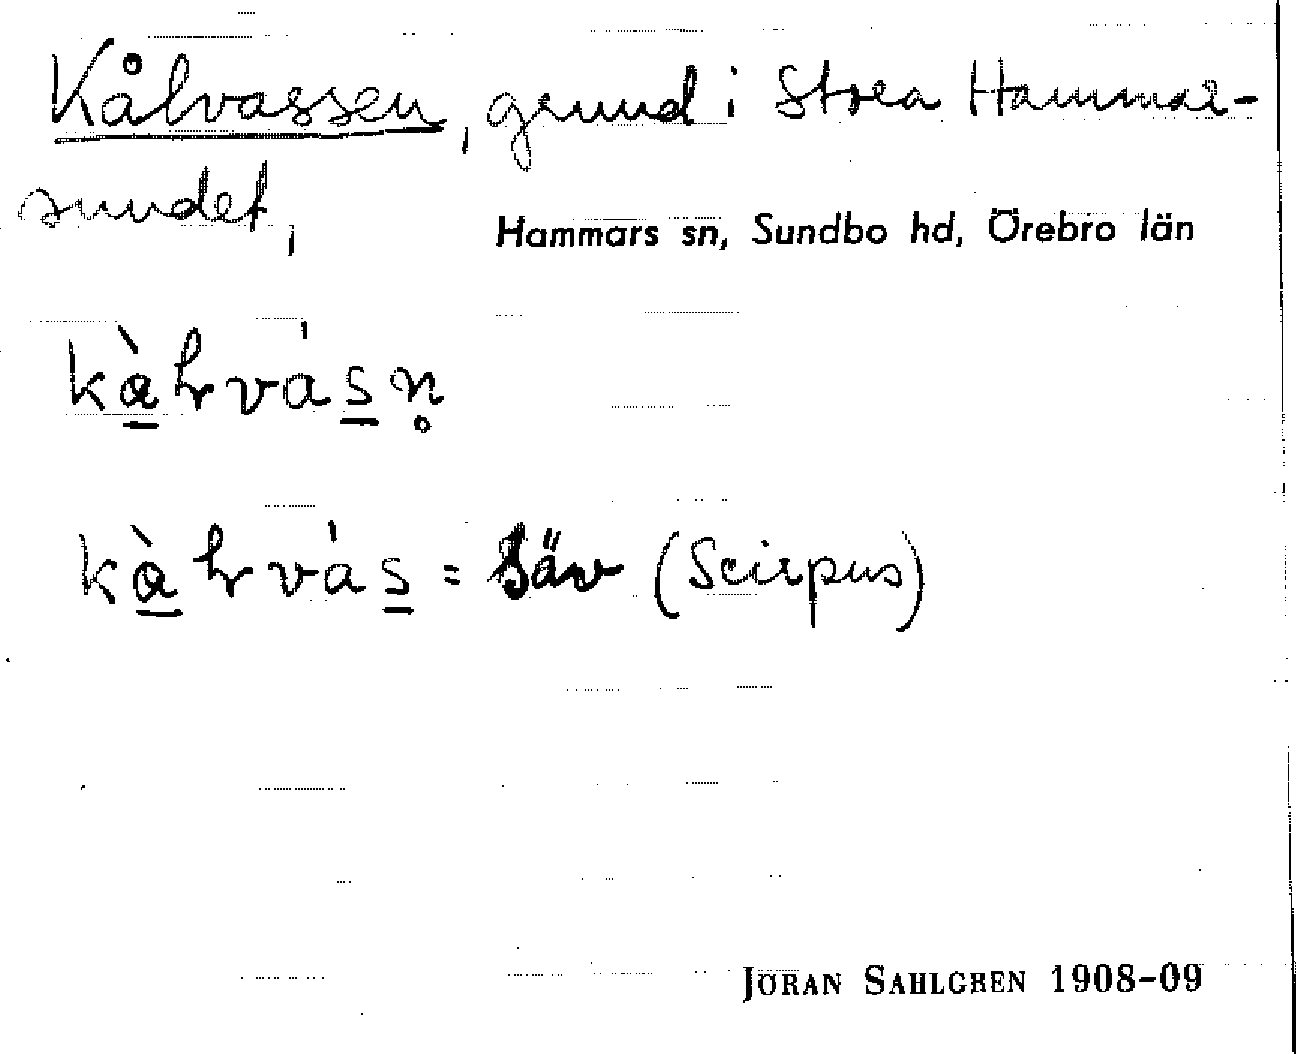 Kålvassen, grund i Stora Hammar-
sundet,
Hammars sn, Sundbo hd, Örebro län
kàlvás = säv (Scirpus)
JÖRAN SAHLGREN 1908-09